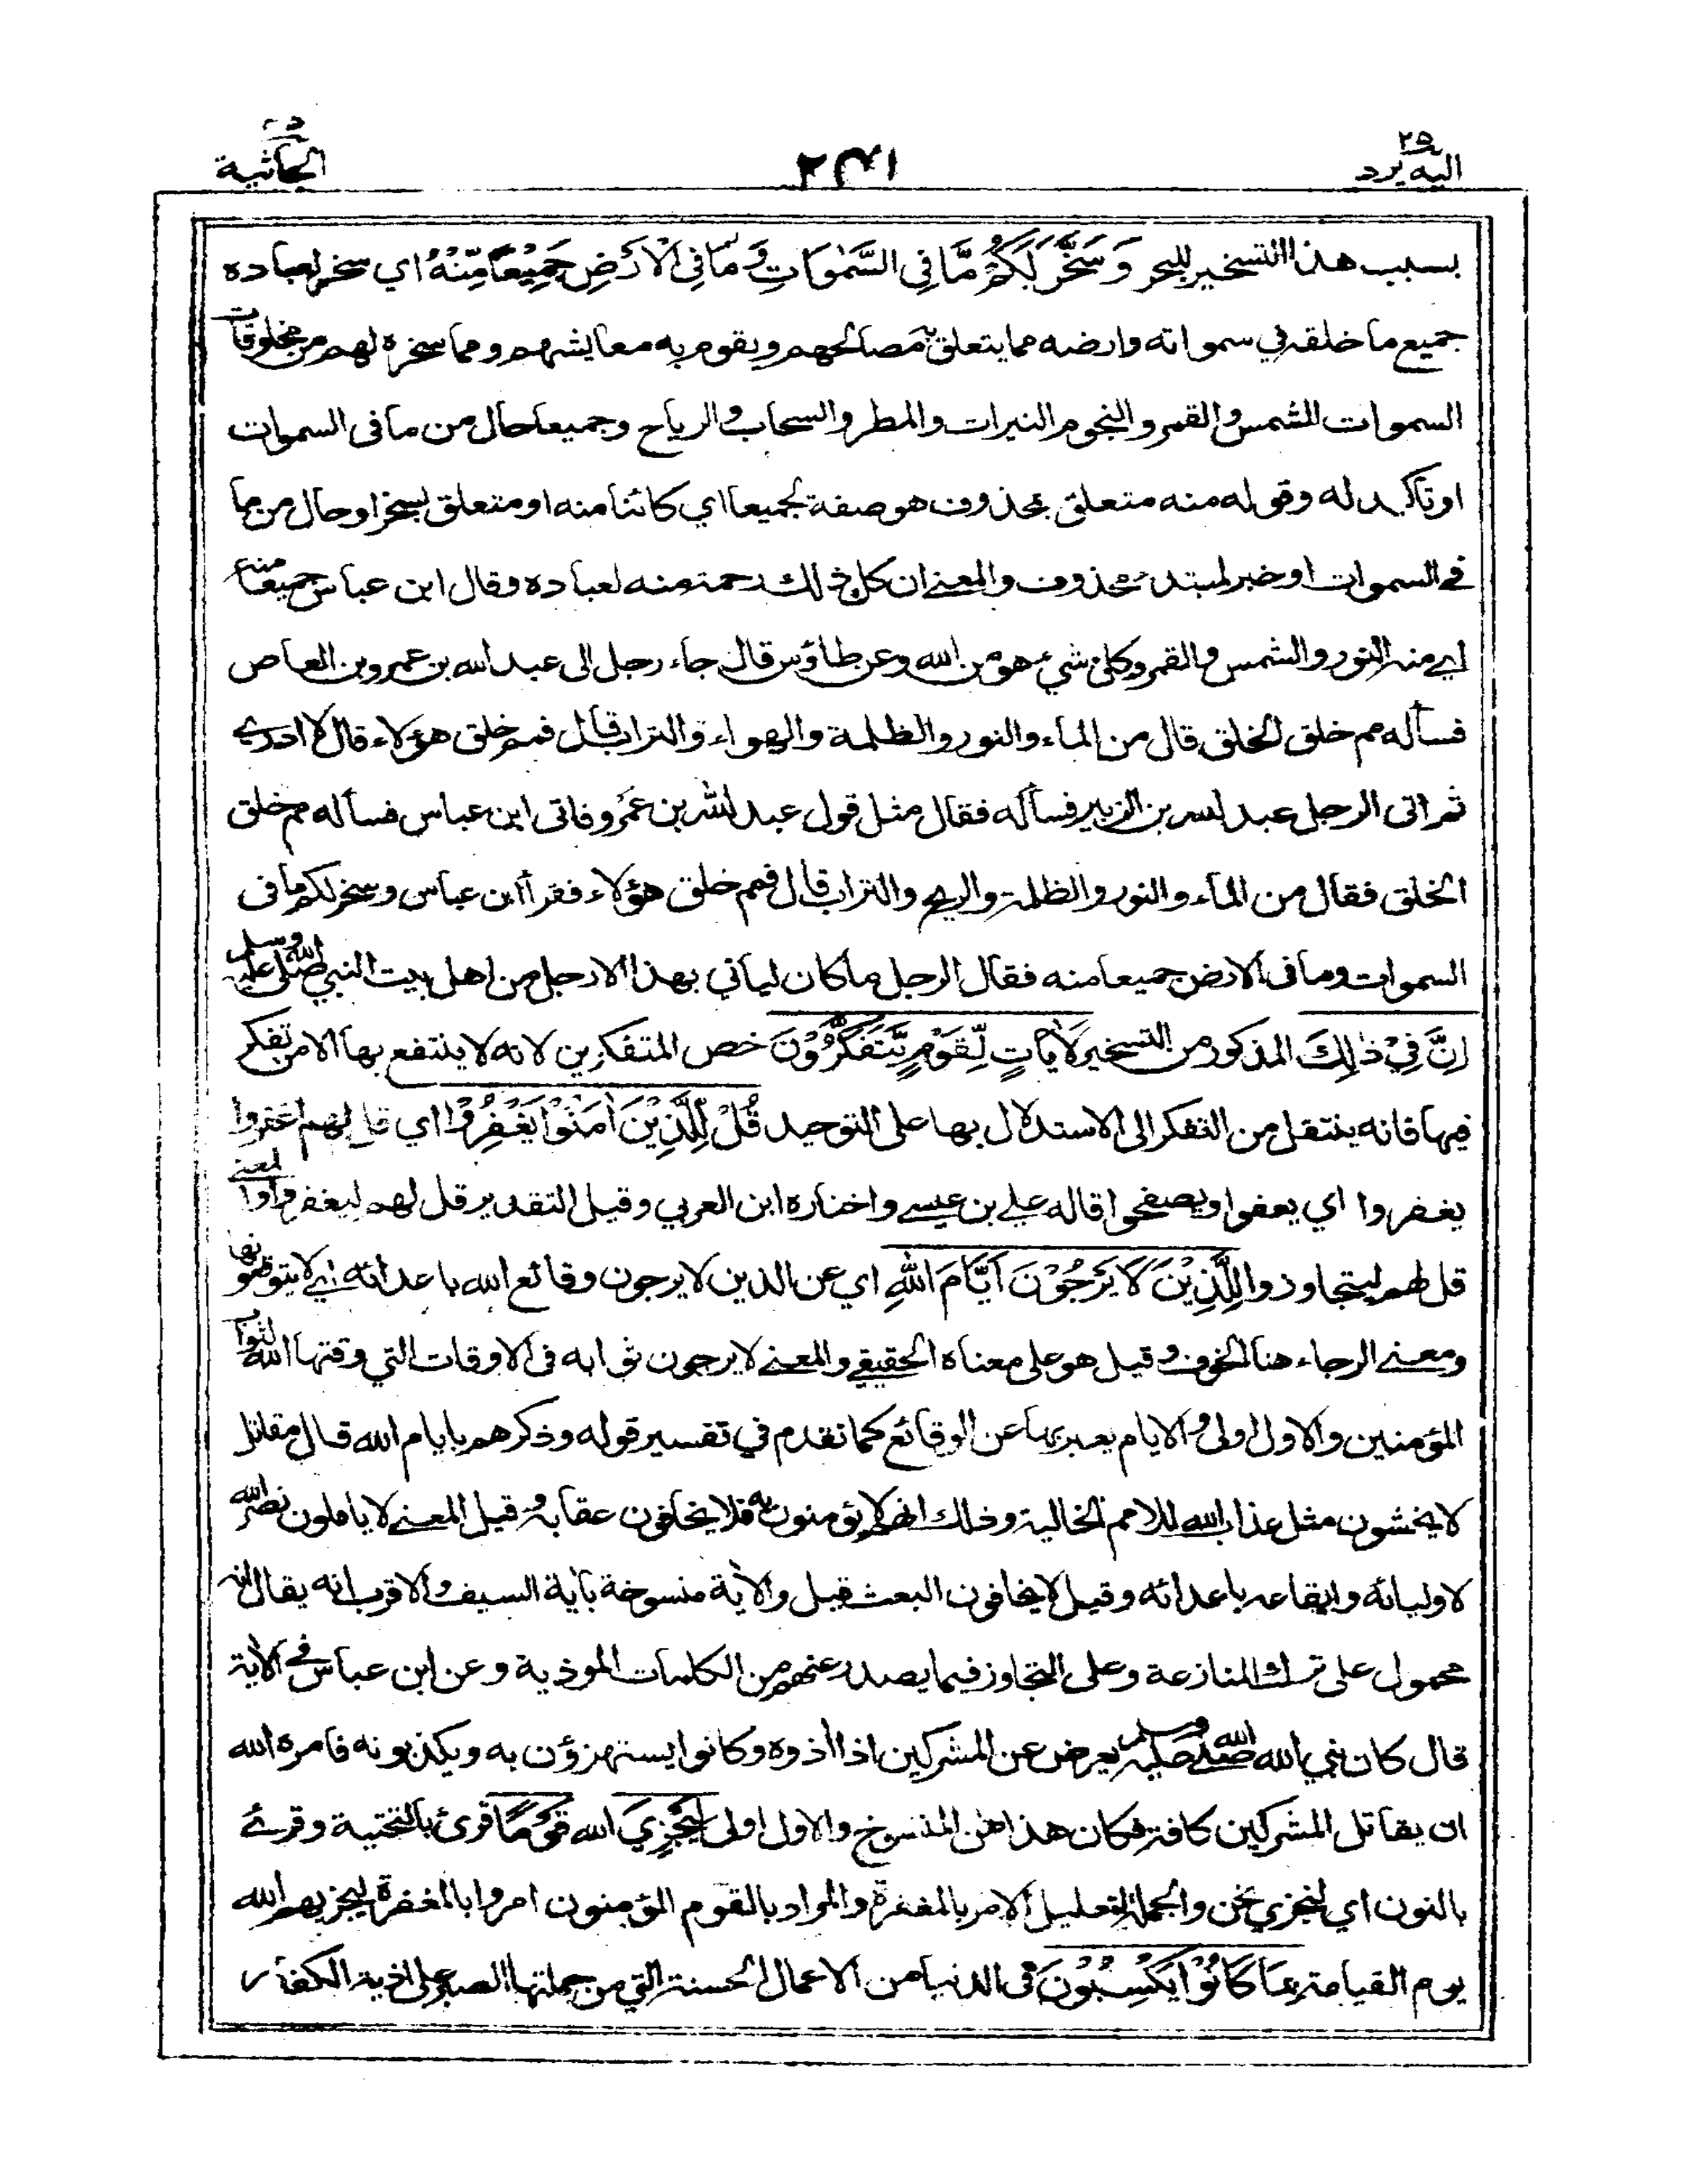 اليه يرد ٢٥
الجاثية
بسبب هذا التسخير للبحر وَسَخَّرَ لَكُمْ مَّا فِي السَّمٰوَاتِ وَمَا فِي الْاَرْضِ جَمِيْعًا مِّنْهُ اي سخر لعباده
جميع ما خلقه في سمواته وارضه مما يتعلق به مصالحهم ويقوم به معايشهم ومما سخره لهم من مخلوقات
السموات الشمس والقمر والنجوم النيرات والمطر والسحاب والرياح وجميعا حال من ما فى السموات
او تاكيد له وقوله منه متعلق بمحذوف هو صفة لجميعا اي كائنا منه او متعلق بسخر او حال من ما
في السموات او خبر لمبتدء محذوف والمعنى ان كل ذلك رحمة منه لعباده وقال ابن عباس جميعا منه
اي منه النور والشمس والقمر وكل شيء هو من الله وعن طاؤس قال جاء رجل الى عبد الله بن عمرو بن العاص
فسأله مم خلق الخلق قال من الماء والنور والظلمة والهواء والتراب قال فمم خلق هؤلاء قال لا ادري
ثم اتى الرجل عبد الله بن الزبير فسأله فقال مثل قول عبد الله بن عمرو فاتى ابن عباس فسأله مم خلق
الخلق فقال من الماء والنور والظلمة والريح والتراب قال فمم خلق هؤلاء فقرأ ابن عباس وسخر لكم ما فى
السموات وما فى الارض جميعا منه فقال الرجل ما كان لياتي بهذا الا رجل من اهل بيت النبي صلى الله عليه وسلم
اِنَّ فِيْ ذٰلِكَ المذكور من التسخير لَاٰيَاتٍ لِّقَوْمٍ يَّتَفَكَّرُوْنَ خص المتفكرين لانه لا ينتفع بها الا من تفكر
فيها فانه ينتقل من التفكر الى الاستدلال بها على التوحيد قُلْ لِلَّذِيْنَ اٰمَنُوْا يَغْفِرُوْا اي قل لهم اغفروا
يغفروا اي يعفوا ويصفحوا قاله علي بن عيسى واختاره ابن العربي وقيل التقدير قل لهم ليغفروا والمعنى
قل لهم ليتجاوزوا لِلَّذِيْنَ لَا يَرْجُوْنَ اَيَّامَ اللهِ اي عن الذين لا يرجون وقائع الله باعدائه اي لا يتوقعونها
ومعنى الرجاء هنا الخوف وقيل هو على معناه الحقيقي والمعنى لا يرجون ثوابه فى الاوقات التي وقتها الله لثواب
المؤمنين والاول اولى والايام يعبر بها عن الوقائع كما تقدم في تفسير قوله وذكرهم بايام الله قال مقاتل
لا يخشون مثل عذاب الله للامم الخالية وذلك انهم لا يؤمنون به فلا يخافون عقابه وقيل المعنى لا ياملون نصر الله
لاوليائه وايقاعه باعدائه وقيل لا يخافون البعث قيل والاٰية منسوخة باٰية السيف والاقرب انه يقال انه
محمول على ترك المنازعة وعلى التجاوز فيما يصدر عنهم من الكلمات الموذية وعن ابن عباس في الاٰية
قال كان نبي الله صلى الله عليه وسلم يعرض عن المشركين اذا اذوه وكانوا يستهزؤن به ويكذبونه فامره الله
ان يقاتل المشركين كافة فكان هذا من المنسوخ والاول اولى لِيَجْزِيَ الله قَوْمًا قرئ بالتحتية وقرئ
بالنون اي لنجزي نحن والجملة لتعليل الامر بالمغفرة والمراد بالقوم المؤمنون امروا بالمغفرة ليجزيهم الله
يوم القيامة بِمَا كَانُوْا يَكْسِبُوْنَ فى الدنيا من الاعمال الحسنة التي من جملتها الصبر على اذية الكفار